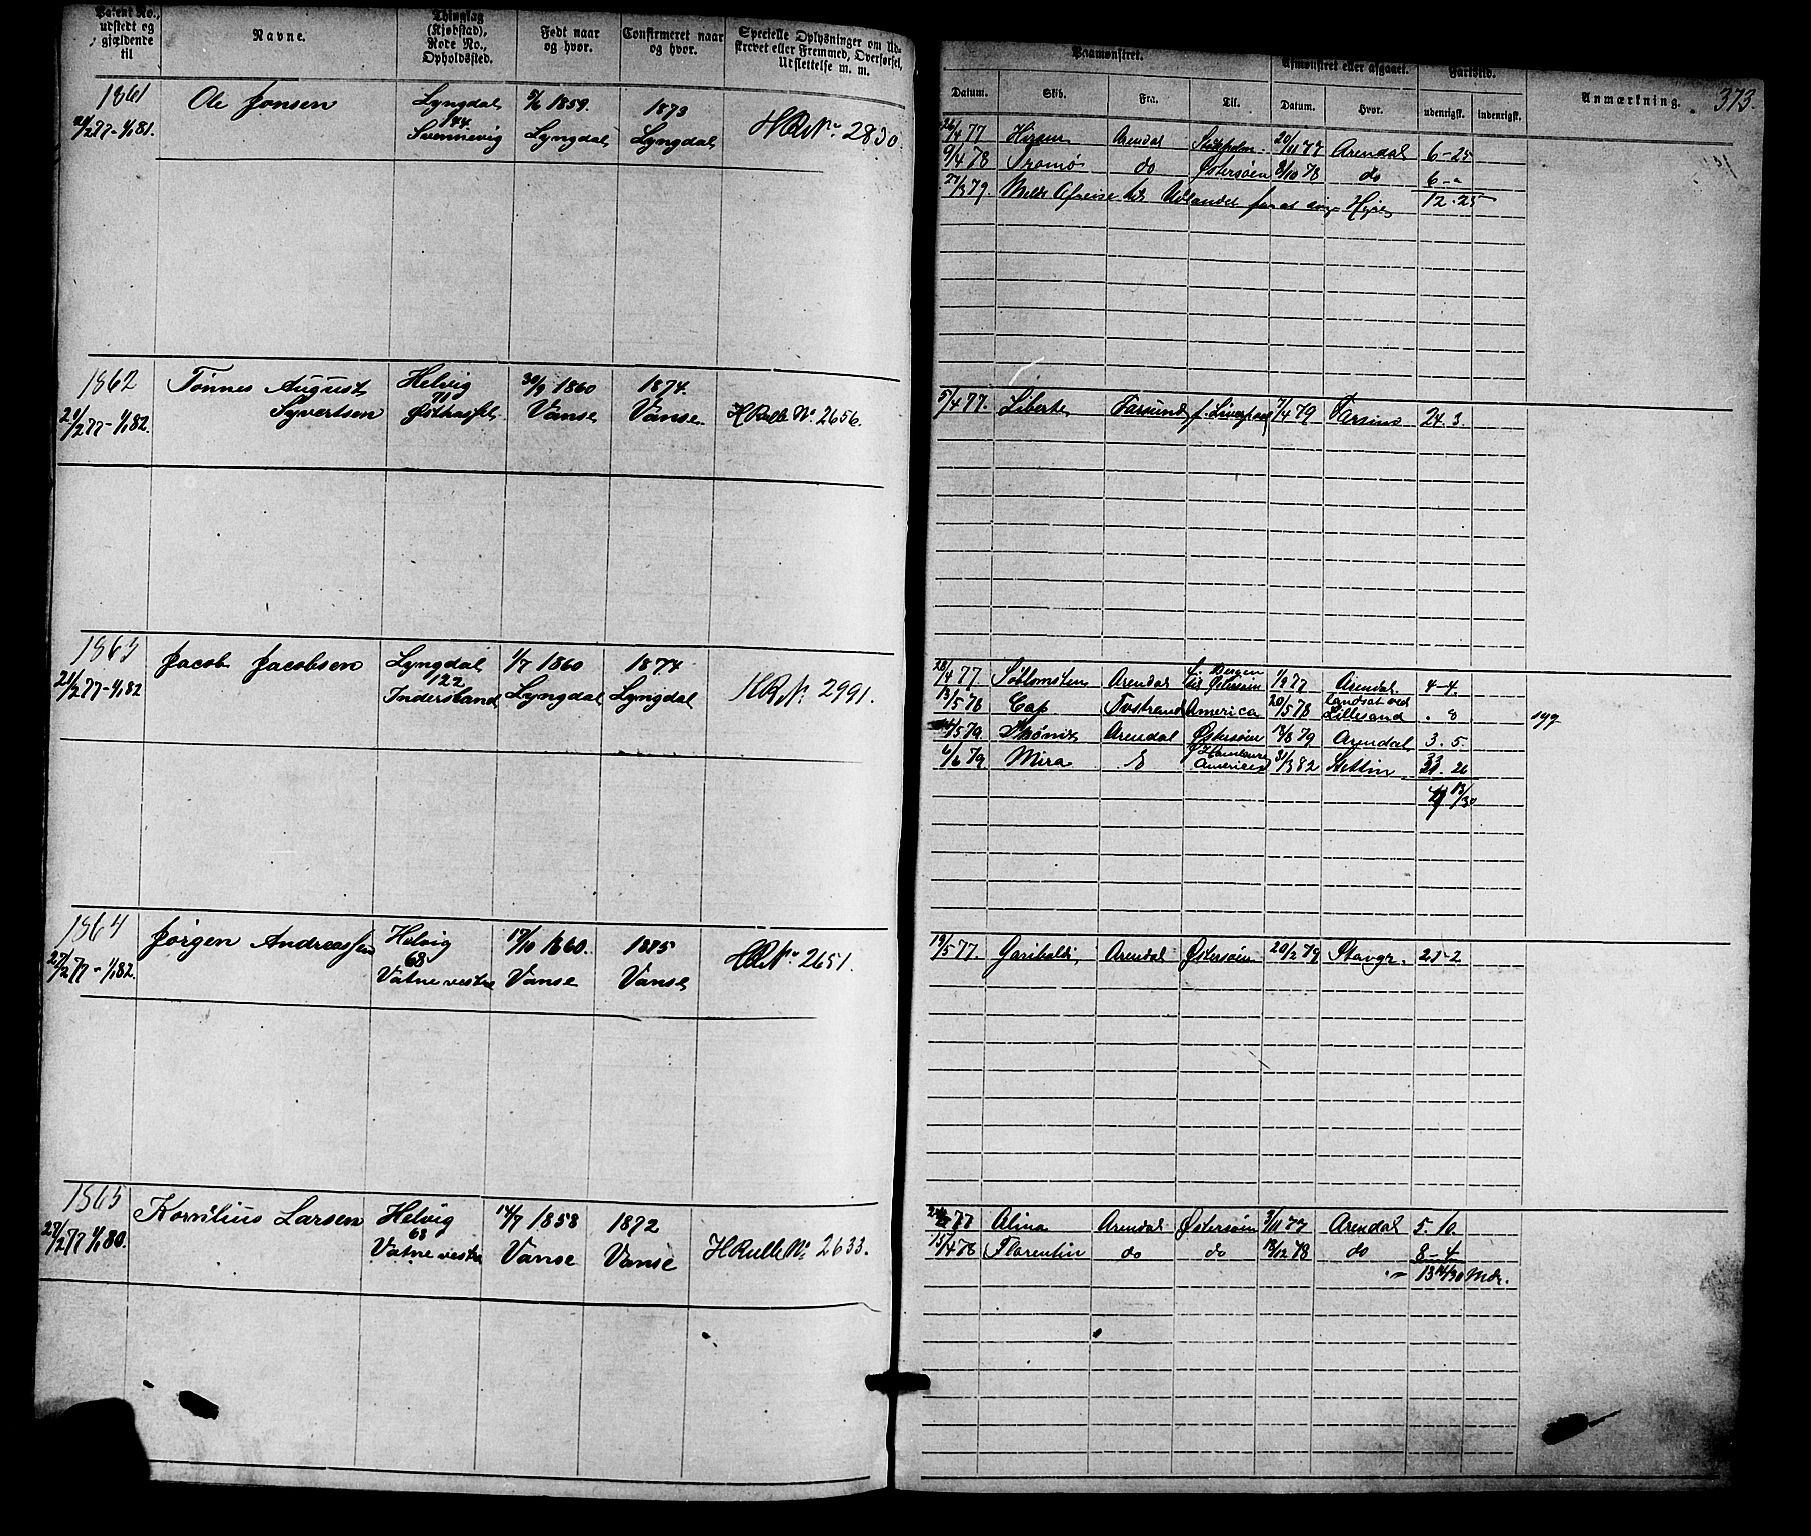 Patent No., utstedt og gjældende til
Navne.
Thinglag (Kjøbstad), Rode No., Opholdssted.
Født naar og hvor.
Confirmeret naar og hvor.
Specielle Oplysninger om Udskrevet eller Fremmed, Overførsel, Udslettelse m. m.
1861 Ole Jonsen Lyngdal 5/6 1859. 1873
21/2 77-1/1 81. 144 Svennevig Lyngdal Lyngdal H R No. 2830.
1862 Tönnes August Helvig 30/9 1860 1874.
21/2 77-1/1 82. Syvertsen 71 Østhassel Vanse Vanse H Rulle No. 2656.
1863 Jacob Jacobsen Lyngdal 1/7 1860 1874.
21/2 77-1/1 82 122 Indersland Lyngdal Lyngdal H R No. 2991.
1864 Jörgen Andreassen Helvig 17/10 1860. 1875
27/2 77-1/1 82. 68 Vatne vestre Vanse Vanse H R No. 2651.
1865 Kornilius Larsen Helvig 14/7 1858 1872
27/2 77 1/1 80. 68 Vatne vestre Vanse Vanse H Rulle No. 2633.
Paamønstret. Afmønstret eller afgaaet. Fartstid. Anmærkning. 373.
Datum. Skib. Fra. Til. Datum. Hvor. udenrigsk. indenrigsk.
26/4 77 Hiram Arendal Stockholm 20/11 77 Arendal 6-25
9/4 78 Tromö do Østersöen 8/10 78 do 6-"
27/3 79. Meldt Afreise til Udlandet for at söge Hyre 12.25
5/4 77. Liberte Farsund f. Liverpool 7/4 79 Farsund 24.3.
28/4 77 Arendal til Østersöen 1/9 77 Arendal. 4-4.
13/5 78 Cap Tvestrand America 20/5 78 Landsat ved Lillesand . 8 199
/5 79. Phönix Arendal Østersöen 19/8 79 Arendal 3.5.
6/6 79. Mira America 31/3 82 Stettin 33. 26
13/30
19/5 77. Garibaldi, Arendal Østersöen 20/2 79 Stavgr. 21-2
77 Alina Arendal Østersöen 3/11 77 Arendal 5.10.
15/4 78 Florentin do do 18/12 78 do 8-4
13 14/30 Mdr.